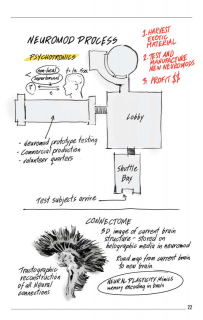 NEUROMOD PROCESS
PSYCHOTRONICS
1. HARVEST
EXOTIC
MATERIAL
2. TEST AND
MANUFACTURE
NEW NEUROMODS
3. PROFIT $$
Lobby
- neuromod prototype testing
- Commercial production
- volunteer quarters
Shuttle
Bay
Test subjects arrive
CONNECTOME
3D image of current brain
structure - stored on
holographic matrix in neuromod
Road map from current brain
to new brain
Tractographic
reconstruction
of all Neural
connections
NEURAL PLASTICITY MIMICS
memory encoding in brain
22